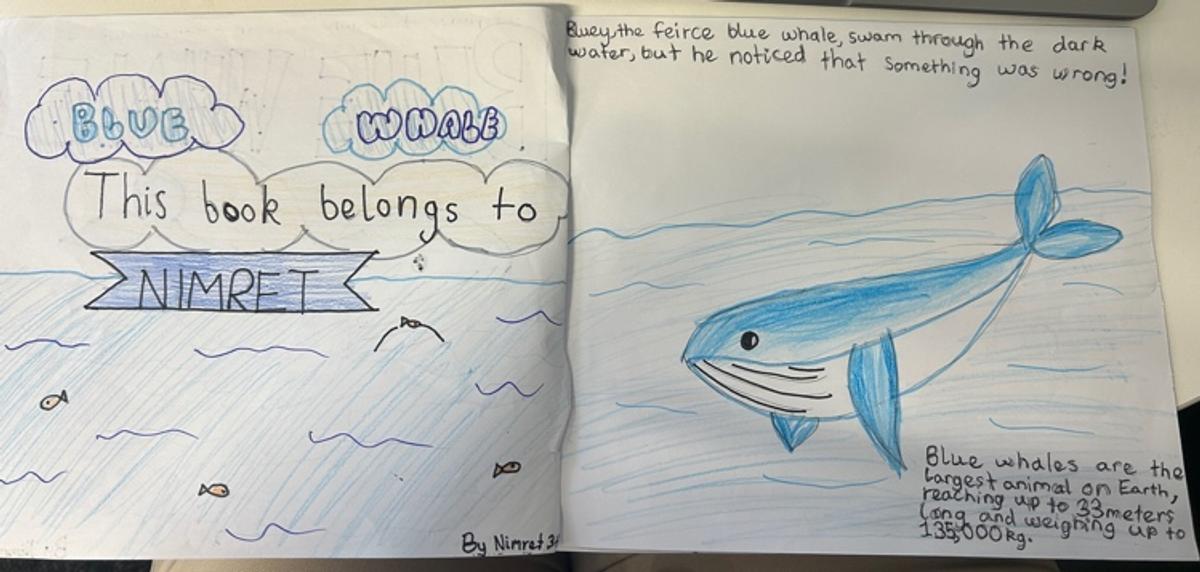 BLUE WHALE
This book belongs to
NIMRET
By Nimret
Bluey, the feirce blue whale, swam through the dark
water, but he noticed that something was wrong!
Blue whales are the
largest animal on Earth,
reaching up to 33meters
long and weighing up to
135,000kg.